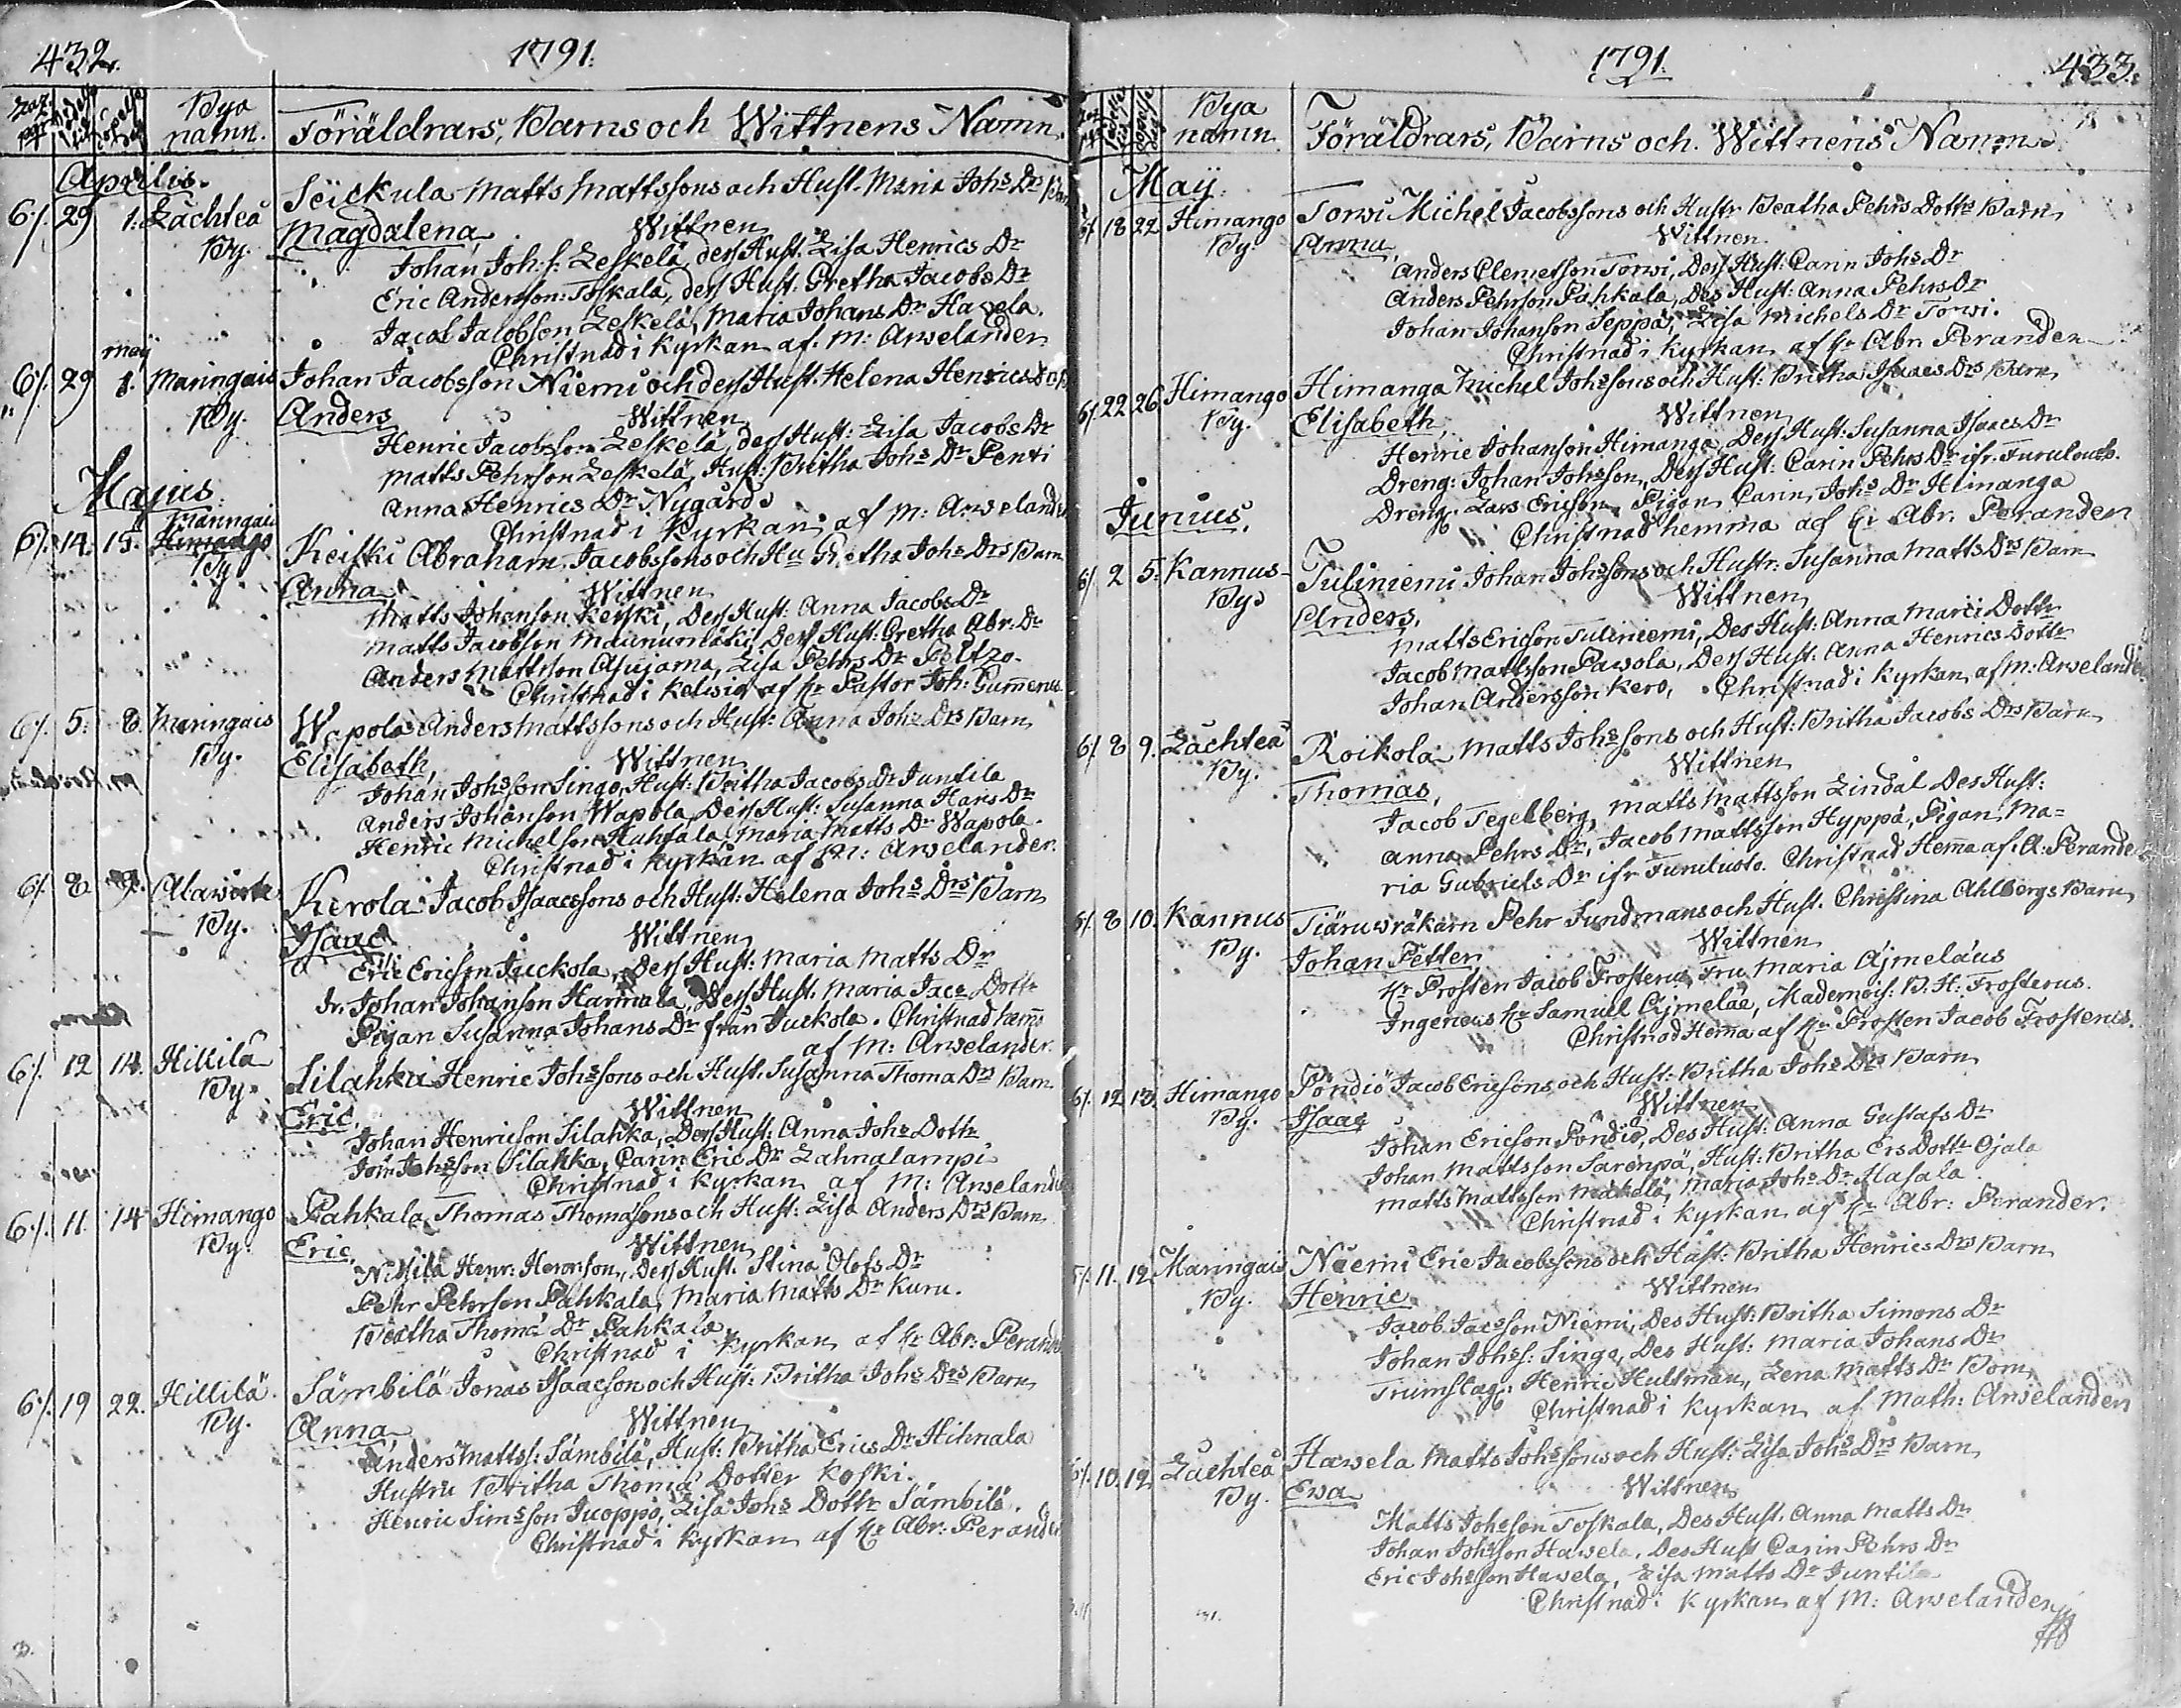 432.
1791.
Bya
namn.
Föräldrars, Barns och Wittnens Namn.
Aprilis.
6/. 29 1. Lächteå By.
Seickula Matts Mattssons och Hust. Maria Johs Drs
Magdalena, Wittnen
Johan Joh: s: Leskelä, dess Hust. Lisa Henrics Dr
Eric Andersson Toskala, dess Hust. Gretha Jacobs Dr
Jacob Jacobsson Leskelä, Maria Johans Dr Havela.
Christnad i Kyrkan af M: Arvelander
maij
6/. 29 1. Maringais By.
Johan Jacobsson Niemi och dess Hust. Helena Henrics
Anders Wittnen
Henric Jacobsson Leskelä, dess Hust: Lisa Jacobs Dr
Matts Pehrson Leskelä, Hust: Britha Johs Dr Penti
Anna Henrics Dr Nygård
Christnad i Kyrkan af M: Arvelander
Majus
Maringais
6/. 14. 15. Himango By
Keiski Abraham Jacobssons och Hu Gretha Johs Drs Barn
Anna Wittnen
Matts Johanson Keiski, Dess Hust: Anna Jacobs Dr
Matts Jacobson Maunumäki, Dess Hust: Gretha Abr: Dr
Anders Mattsson Asujama, Lisa Pehrs Dr Peltzo.
Christnad i Kelwiå af Hr Pastor Joh: Gummerus.
6/. 5. 8. Maringais By.
Wapola Anders Mattssons och Hust: Anna Johs Drs Barn
Elisabeth, Wittnen
Johan Johsson Singo, Hust: Britha Jacobs Dr Juntila
Anders Johanson Wapola, Dess Hust: Susanna Hans Dr
Henric Michelson Huhtala, Maria Matts Dr Wapola.
Christnad i Kyrkan af M: Arvelander.
6/. 8 9. Alawirte By.
Kerola Jacob Isaacssons och Hust: Helena Johs Drs Barn
Isaac Wittnen
Eric Ericson Juckola, Dess Hust: Maria Matts Dr
Dr. Johan Johanson Hannula, Dess Hust. Maria Jacs Dottr
Pigan Susanna Johans Dr från Juckola. Christnad hemma
af M: Arvelander.
6/. 12 14. Hillilä By.
Silahka Henric Johssons och Hust. Susanna Thoma Drs Barn
Eric. Wittnen
Johan Henricson Silahka, Dess Hust: Anna Johs Dottr
Johsson Silahka, Carin Eric Dr Lahnalampi
Christnad i Kyrkan af M: Arvelander
6/. 11. 14 Himango By.
Pahkala Thomas Thomassons och Hust: Lisa Anders Drs Barn
Eric, Wittnen
Nikilä Henr: Henrson, Dess Hust. Stina Olofs Dr
Pehr Pehrson Pahkala, Maria Matts Dr Kuru.
Beatha Thoma Dr Pahkala
Christnad i Kyrkan af Hr Abr: Perander
6/. 19 22. Hillilä By.
Sämbilä Jonas Isaacson och Hust: Britha Johs Drs Barn
Anna Wittnen
Anders Mattss: Sämbilä, Hust: Britha Erics Dr Hihnala
Hustru Britha Thoma Dotter Koski.
Henric Simsson Juoppo, Lisa Johs Dottr Sämbilä.
Christnad i Kyrkan af Hr Abr: Perander
1791.
433.
Bya
namn.
Föräldrars, Barns och Wittnens Namn.
Maij.
6/. 18 22 Himango By.
Torwi Michel Jacobssons och Hustr Beatha Pehrs Dottrs Barn
Anna, Wittnen
Anders Clemetson Torwi, Dess Hust: Carin Johs Dr
Anders Pehrson Pahkala, Des Hust: Anna Pehrs Dr
Johan Johanson Seppä, Lisa Michels Dr Torwi.
Christnad i Kyrkan af Hr Abr Perander
6/. 22 26 Himango By.
Himanga Michel Johssons och Hust: Britha Isaacs Drs Barn
Elisabeth, Wittnen
Henric Johanson Himanga, Dess Hust: Susanna Isaacs Dr
Dreng: Johan Johsson, Dess Hust: Carin Pehrs Dr ifr.
Dreng. Lars Ericson, Pigan Carin Johs Dr Himanga
Christnad hemma af Hr Abr. Perander
Junius.
6/. 2 5. Kannus By
Tuliniemi Johan Johssons och Hustr. Susanna Matts Drs Barn
Anders, Wittnen
Matts Ericson Tuliniemi, Des Hust: Anna Marci Dottr
Jacob Mattsson Pavola, Dess Hust: Anna Henrics Dottr
Johan Andersson Kero, Christnad i Kyrkan af M: Arvelander
6/ 8 9. Lächteå By.
Roikola Matts Johssons och Hust: Britha Jacobs Drs Barn
Thomas, Wittnen
Jacob Tegelberg, Matts Mattsson Lindal Des Hust:
Anna Pehrs Dr, Jacob Mattsson Hyppä, Pigan Ma=
ria Gabriels Dr ifr Christnad Hemma af A: Perander
6/. 8 10. Kannus By.
Tiäruwräkarn Pehr Sundmans och Hust. Christina Ahlbergs Barn
Johan Petter Wittnen
Hr Prosten Jacob Frosterus, Fru Maria Ajmelæus
Ingeneus Hr Samuel Ajmelæ, Mademois: B. H. Frosterus.
Christnad Hemma af Hr Prosten Jacob Frosterus.
6/. 12 13. Himango By.
Pöndiö Jacob Ericsons och Hust: Britha Johs Drs Barn
Isaac Wittnen
Johan Ericson Pöndiö, Des Hust: Anna Gustafs Dr
Johan Mattsson Sarenpä, Hust: Britha Ers Dottr Ojala
Matts Mattsson Mäkelä, Maria Johs Dr Hasala
Christnad i Kyrkan af Hr Abr: Perander.
5/. 11. 12. Maringais By.
Niemi Eric Jacobssons och Hust: Britha Henrics Drs Barn
Henric Wittnen
Jacob Jacsson Niemi, Des Hust: Britha Simons Dr
Johan Johss: Singo, Des Hust: Maria Johans Dr
Trumslag: Henric Hultman, Lena Matts Dr Bom
Christnad i Kyrkan af Math: Arvelander
6/. 10. 12. Lachteå By.
Hawela Matts Johssons och Hust: Lisa Johs Drs Barn
Ewa Wittnen
Matts Johsson Toskala, Des Hust. Anna Matts Dr
Johan Johsson Hawela, Des Hust Carin Pehrs Dr
Eric Johsson Hawela, Lisa Matts Dr Juntila
Christnad i Kyrkan af M: Arvelander